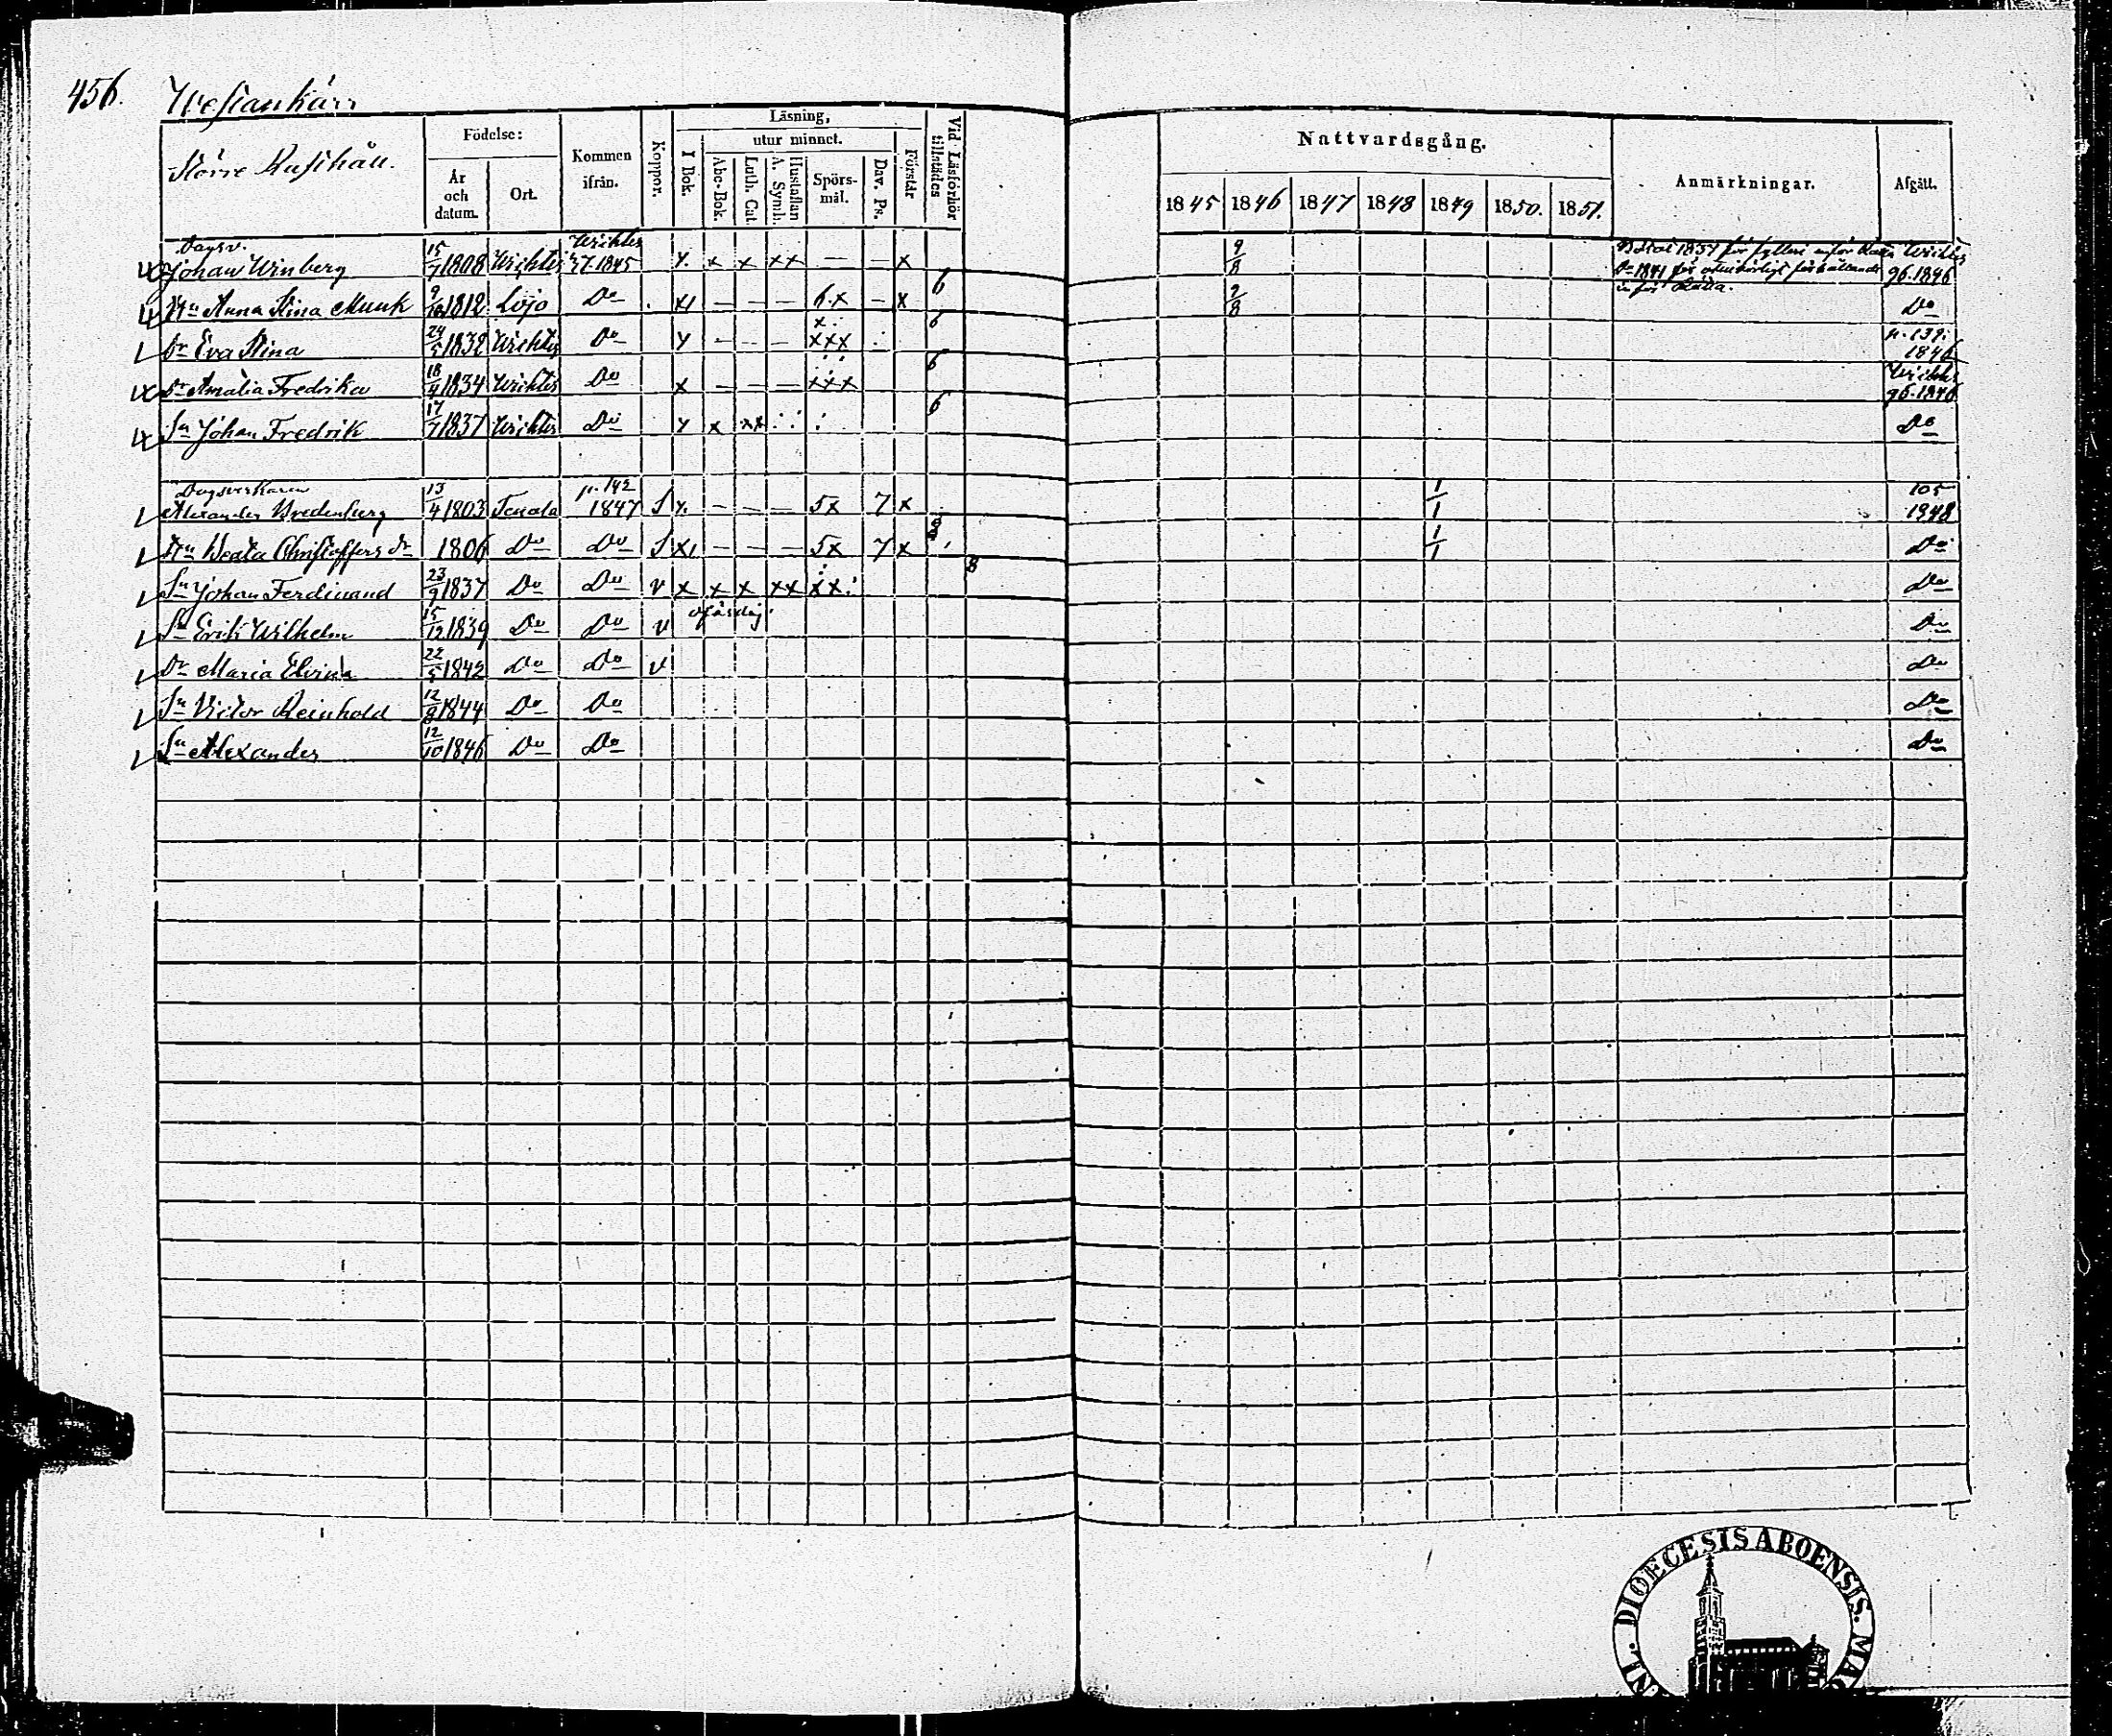 456. Westankärr
Större Rusthåll.
Födelse:
År och datum.
Ort.
Kommen ifrån.
Koppor.
Läsning,
I Bok.
utur minnet.
Abc-Bok.
Luth. Cat.
Hustaflan A. Symb.
Spörsmål.
Dav. Ps.
Förstår
Vid Läsförhör tillstädes
Nattvardsgång.
1845 1846 1847 1848 1849 1850. 1851.
Anmärkningar.
Afgått.
Dagsv.
Johan Winberg 15/7 1808 Wichtis Wichtis 1845 x x x xx — — x 9/8 1837 för fylleri inför Rätta Wichtis
Do 1841 för förhållande 96.1846
inför Rätta.
Hu Anna Stina Munk 9/12 1812 Lojo Do x — — — 6.x — x 6 2/8 Do
Dr Eva Stina 24/5 1832 Wichtis Do x — — — xxx 6 p. 139. 1846
Dr Amalia Fredrika 18/4 1834 Wichtis Do x — — — xxx 6 Wichtis 96.1846
Sn Johan Fredrik 17/7 1837 Wichtis Do x x xx 6 Do
Dagsverkaren
Alexander Bredenberg 13/4 1803 Tenala p. 142 1847 S x — — — 5x 7 x 1/1 105 1848
Hu Beata Christoffersdr 1806 Do Do S x — — — 5x 7 x 8 1/1 Do
Sn Johan Ferdinand 23/9 1837 Do Do v x x x xx xx 8 Do
Sn Erik Wilhelm 15/12 1839 Do Do v ofärdig Do
Dr Maria Elvina 22/5 1842 Do Do v Do
Sn Victor Reinhold 12/8 1844 Do Do Do
Sn Alexander 12/10 1846 Do Do Do
DIOECESIS ABOENSIS.